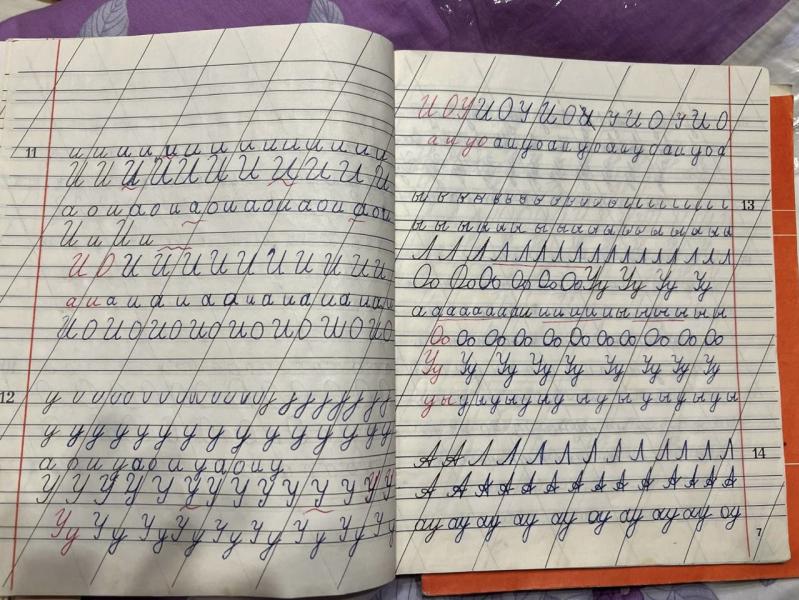 11
и и и и и и и и и и и и и и
И И И И И И И И И И И И
а о и а о и а о и а о и а о и а о и
И и И и
И О И И И И И И И И И И
а и а и а и а и а и а и а и а и
И О И О И О И О И О И О И О И О
12
у у у у у у у у у у у у у
а о и у а о и у а о и у
У У У У У У У У У У У У У
Уу Уу Уу Уу Уу Уу Уу Уу Уу
И О У И О У И О И У И О У И О
а и у о а и у о а и у о а и у о а и у о а
13
ы ы ы ы ы ы ы ы ы ы ы ы
Л Л Л Л Л Л Л Л Л Л Л Л Л Л Л Л
Оо Оо Оо Оо Оо Уу Уу Уу Уу
Оо Оо Оо Оо Оо Оо Оо Оо Оо Оо
Уу Уу Уу Уу Уу Уу Уу Уу
у ы у ы у ы у ы у ы у ы у ы у ы у ы
14
А А Л Л Л Л Л Л Л Л Л
А А А А А А А А А А А А А
ау ау ау ау ау ау ау ау ау ау
7